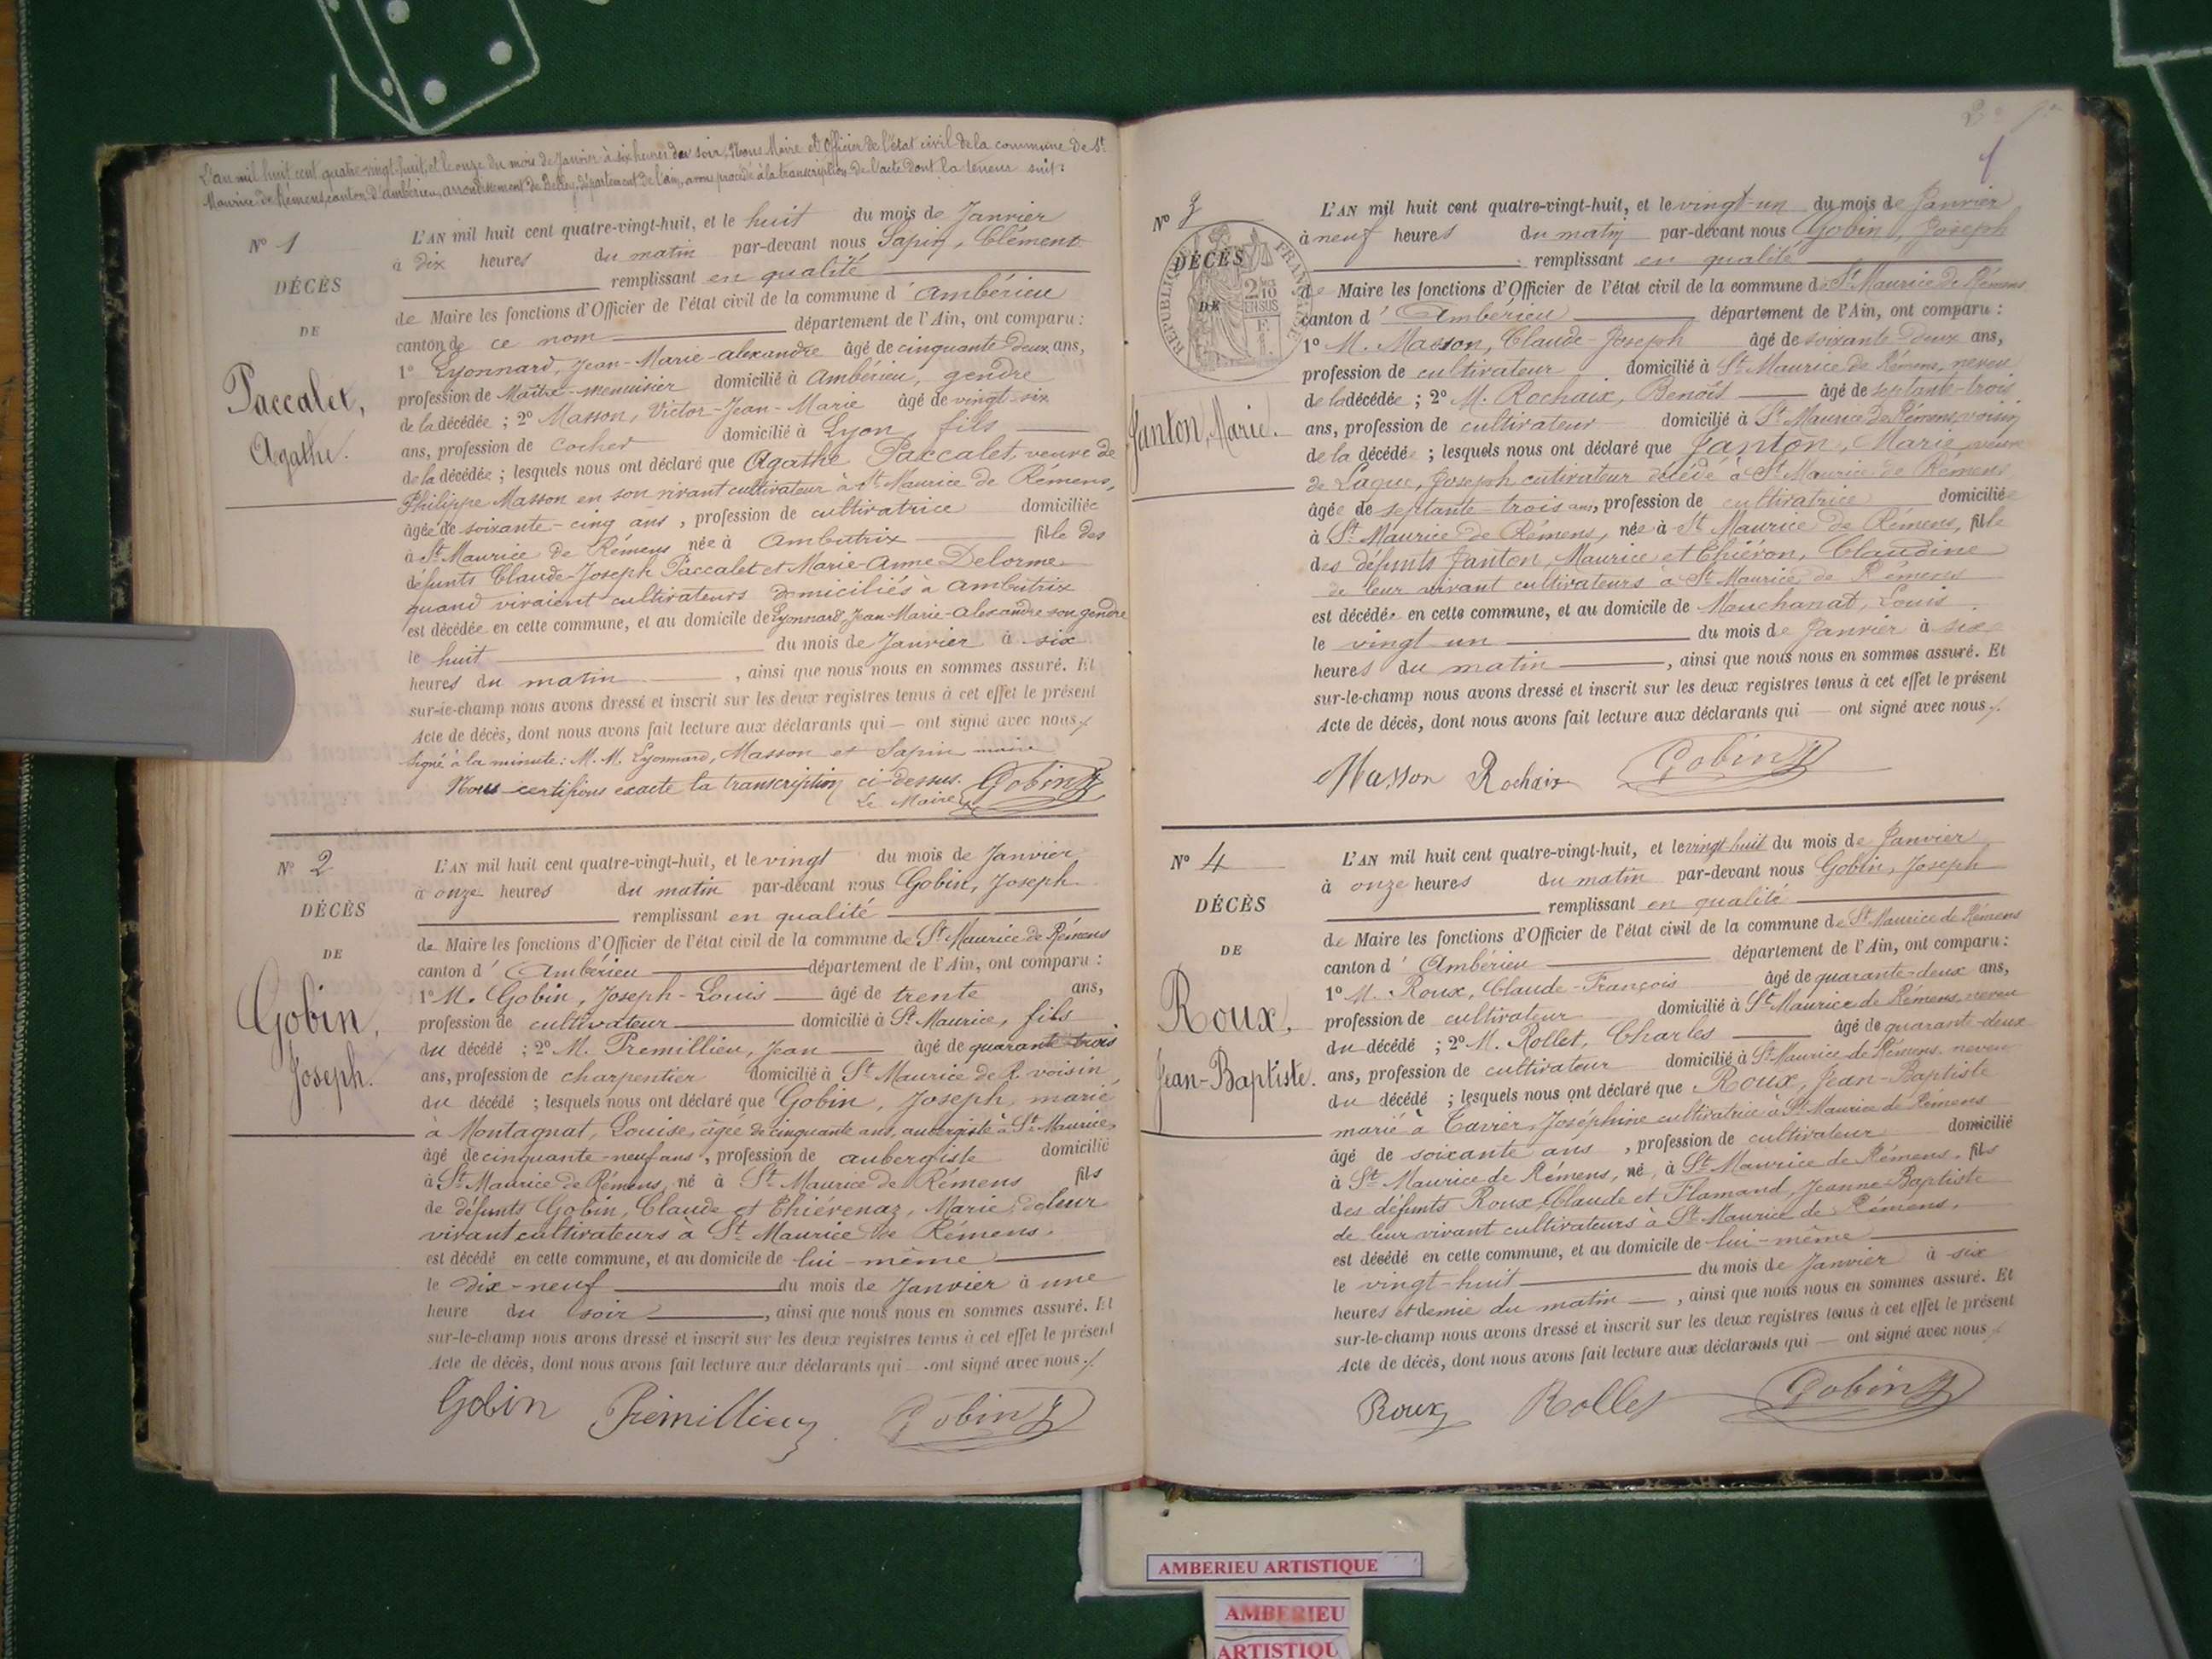 L'an mil huit cent quatre-vingt-huit, et le onze du mois de Janvier à six heures du soir, Nous Maire et Officier de l'état civil de la commune de St
Maurice de Rémens, canton d'Ambérieu, arrondissement de Belley, département de l'ain, avons procédé à la transcription de l'acte dont la teneur suit:
N° 1
DÉCÈS
DE
Paccalet,
Agathe.
L'AN mil huit cent quatre-vingt-huit, et le huit du mois de Janvier
à dix heures du matin par-devant nous Sapin, Clément
remplissant en qualité
de Maire les fonctions d'Officier de l'état civil de la commune d'Ambérieu
canton de ce nom département de l'Ain, ont comparu :
1° Lyonnard, Jean-Marie-alexandre âgé de cinquante-deux ans,
profession de Maître-menuisier domicilié à Ambérieu, gendre
de la décédée ; 2° Masson, Victor-Jean-Marie âgé de vingt-six
ans, profession de cocher domicilié à Lyon, fils
de la décédée ; lesquels nous ont déclaré que Agathe Paccalet, veuve de
Philippe Masson en son vivant cultivateur à St Maurice de Rémens,
âgée de soixante-cinq ans, profession de cultivatrice domiciliée
à St Maurice de Rémens née à Ambutrix fille des
défunts Claude-Joseph Paccalet et Marie-Anne Delorme
quand vivaient cultivateurs domiciliés à Ambutrix
est décédée en cette commune, et au domicile de Lyonnard, Jean-Marie-Alexandre son gendre
le huit du mois de Janvier à six
heures du matin , ainsi que nous nous en sommes assuré. Et
sur-le-champ nous avons dressé et inscrit sur les deux registres tenus à cet effet le présent
Acte de décès, dont nous avons fait lecture aux déclarants qui — ont signé avec nous
Signé à la minute: M. M. Lyonnard, Masson et Sapin maire
Nous certifions exacte la transcription ci-dessus.
Le Maire Gobin J
N° 2
DÉCÈS
DE
Gobin,
Joseph.
L'AN mil huit cent quatre-vingt-huit, et le vingt du mois de Janvier
à onze heures du matin par-devant nous Gobin, Joseph
remplissant en qualité
de Maire les fonctions d'Officier de l'état civil de la commune de St Maurice de Rémens
canton d'Ambérieu département de l'Ain, ont comparu :
1° M. Gobin, Joseph-Louis âgé de trente ans,
profession de cultivateur domicilié à St Maurice, fils
du décédé ; 2° M. Premillieu, Jean âgé de quarante-trois
ans, profession de charpentier domicilié à St Maurice de R. voisin
du décédé ; lesquels nous ont déclaré que Gobin, Joseph, marié
à Montagnat, Louise, âgée de cinquante ans, aubergiste à St Maurice,
âgé de cinquante-neuf ans, profession de aubergiste domicilié
à St Maurice de Rémens, né à St Maurice de Rémens fils
de défunts Gobin, Claude et Thiévenaz, Marie, de leur
vivant cultivateurs à St Maurice de Rémens.
est décédé en cette commune, et au domicile de lui-même
le dix-neuf du mois de Janvier à une
heure du soir , ainsi que nous nous en sommes assuré. Et
sur-le-champ nous avons dressé et inscrit sur les deux registres tenus à cet effet le présent
Acte de décès, dont nous avons fait lecture aux déclarants qui — ont signé avec nous
Gobin Prémillieu Gobin J
N° 3
DÉCÈS
DE
RÉPUBLIQUE FRANÇAISE
Janton, Marie.
L'AN mil huit cent quatre-vingt-huit, et le vingt-un du mois de Janvier
à neuf heures du matin par-devant nous Gobin, Joseph
remplissant en qualité
de Maire les fonctions d'Officier de l'état civil de la commune de St Maurice de Rémens
canton d'Ambérieu département de l'Ain, ont comparu :
1° M. Masson, Claude-Joseph âgé de soixante-deux ans,
profession de cultivateur domicilié à St Maurice de Rémens, neveu
de la décédée ; 2° M. Rochaix, Benoît âgé de septante-trois
ans, profession de cultivateur domicilié à St Maurice de Rémens, voisin
de la décédée ; lesquels nous ont déclaré que Janton, Marie, veuve
de Lague, Joseph cutivateur décédé à St Maurice de Rémens
âgée de septante-trois ans, profession de cultivatrice domiciliée
à St Maurice de Rémens, née à St Maurice de Rémens, fille
des défunts Janton, Maurice et Thiéron, Claudine
de leur vivant cultivateurs à St Maurice de Rémens
est décédée en cette commune, et au domicile de Mouchanat, Louis
le vingt-un du mois de Janvier à six
heures du matin , ainsi que nous nous en sommes assuré. Et
sur-le-champ nous avons dressé et inscrit sur les deux registres tenus à cet effet le présent
Acte de décès, dont nous avons fait lecture aux déclarants qui — ont signé avec nous
Masson Rochaix Gobin J
N° 4
DÉCÈS
DE
Roux,
Jean-Baptiste.
L'AN mil huit cent quatre-vingt-huit, et le vingt-huit du mois de Janvier
à onze heures du matin par-devant nous Gobin, Joseph
remplissant en qualité
de Maire les fonctions d'Officier de l'état civil de la commune de St Maurice de Rémens
canton d'Ambérieu département de l'Ain, ont comparu :
1° M. Roux, Claude-François âgé de quarante-deux ans,
profession de cultivateur domicilié à St Maurice de Rémens, neveu
du décédé ; 2° M. Rollet, Charles âgé de quarante-deux
ans, profession de cultivateur domicilié à St Maurice de Rémens, neveu
du décédé ; lesquels nous ont déclaré que Roux, Jean-Baptiste
marié à Tavier, Joséphine cultivatrice à St Maurice de Rémens
âgé de soixante ans , profession de cultivateur domicilié
à St Maurice de Rémens, né à St Maurice de Rémens, fils
des défunts Roux, Claude et Flamand, Jeanne-Baptiste
de leur vivant cultivateurs à St Maurice de Rémens,
est décédé en cette commune, et au domicile de lui-même
le vingt-huit du mois de Janvier à six
heures et demie du matin , ainsi que nous nous en sommes assuré. Et
sur-le-champ nous avons dressé et inscrit sur les deux registres tenus à cet effet le présent
Acte de décès, dont nous avons fait lecture aux déclarants qui — ont signé avec nous
Roux Rollet Gobin J
AMBERIEU ARTISTIQUE
AMBERIEU
ARTISTIQU